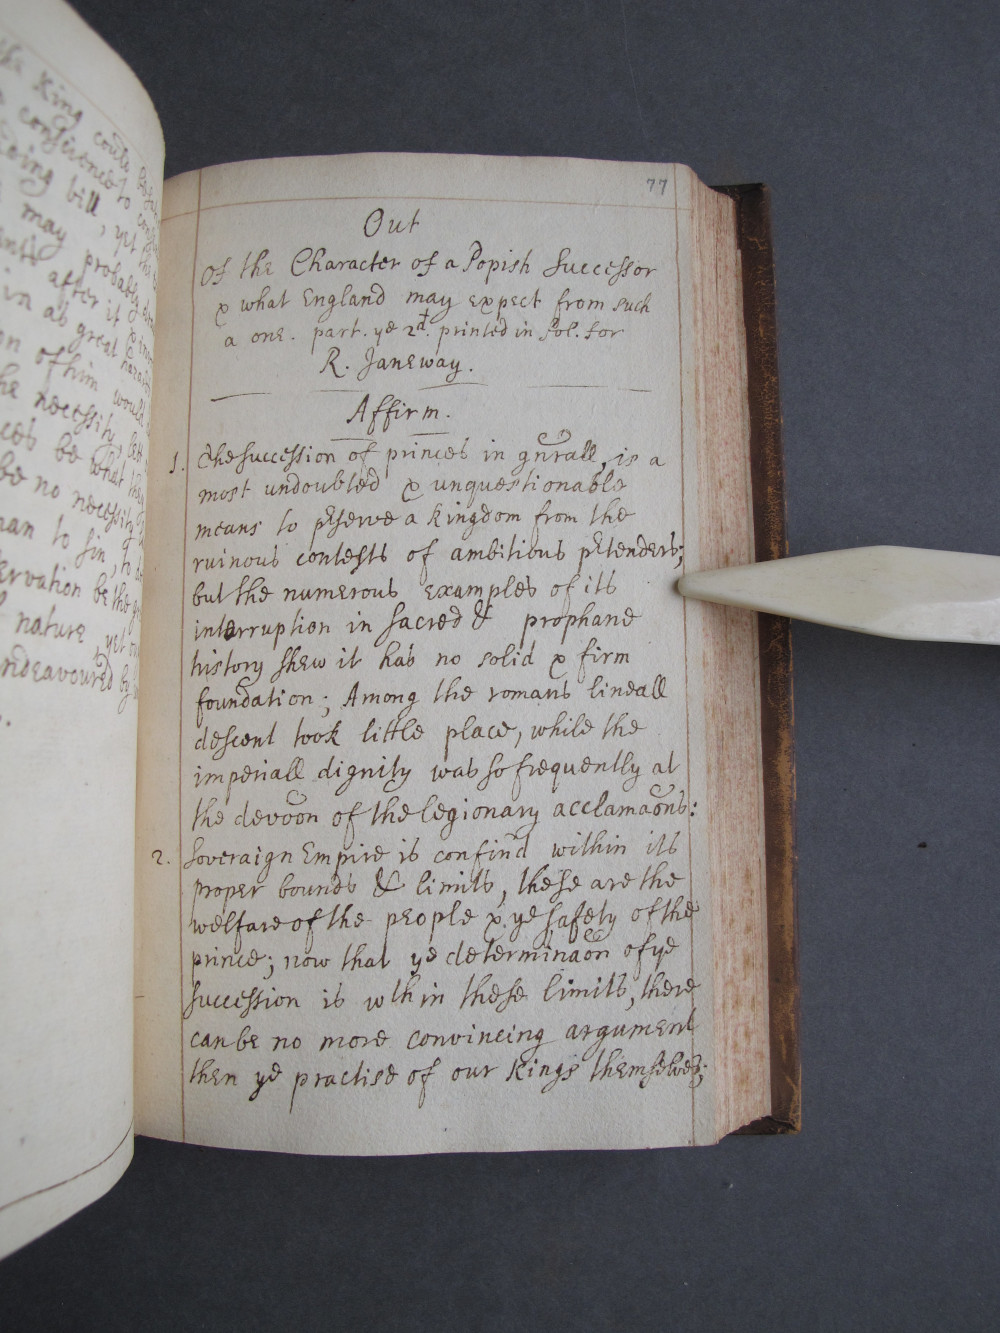 the King coule
conscienced to
bill, yet the
may probably
after it &
in as great
on of him would
the necessity,
ces be what they
be no necessity
man to sin, to
ervation be the
nature, yet
ndeavoured by
77
Out
Of the Character of a Popish Successor
& what England may expect from such
a one. part. ye 2d. printed in fol. for
R. Janeway.
Affirm.
1. The succession of princes in gnrall, is a
most undoubted & unquestionable
means to pserve a kingdom from the
ruinous contests of ambitious ptenders;
but the numerous examples of its
interruption in sacred & prophane
history shew it has no solid & firm
foundation; Among the romans lineall
descent took little place, while the
imperiall dignity was so frequently at
the devoon of the legionary acclamaons:
2. Soveraign Empire is confind within its
proper bounds & limits, these are the
welfare of the people & ye safety of the
prince; now that ye determinaon of ye
succession is wthin these limits, there
can be no more convincing argument
then ye practise of our kings themselves;